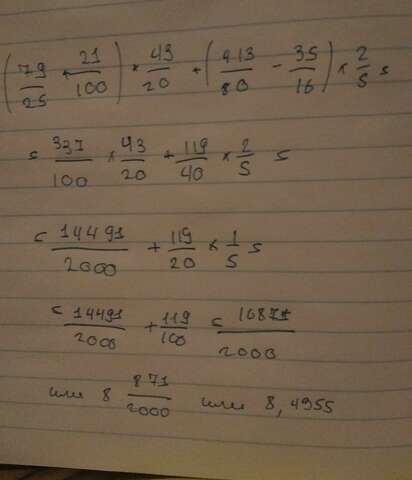 (79/25 + 21/100) * 43/20 + (413/80 - 35/16) * 2/5 =
= 337/100 * 43/20 + 119/40 * 2/5 =
= 14491/2000 + 119/20 * 1/5 =
= 14491/2000 + 119/100 = 16871/2000
или 8 871/2000 или 8,4955